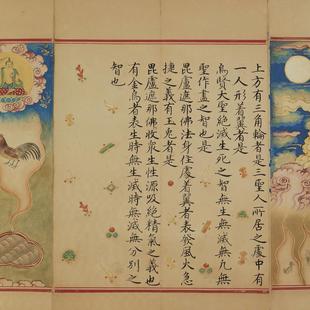 上方有三角輪者是三聖人所居之處中有
一人形著翼者是
烏賢大聖絶滅生死之智無生無滅無九無
聖作畫之智也是
毘盧遮那佛法身住處着翼者表發風火急
捷之義有玉兎者是
毘盧遮那佛收衆生性源吸絶精氣之義也
有金烏者表生時無生滅時無滅無分別之
智也